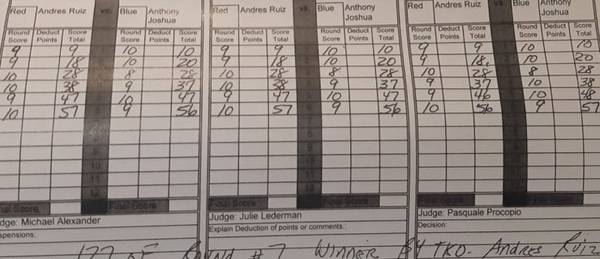 Red Andres Ruiz vs. Blue Anthony
Joshua
Round Deduct Score Round Deduct Score
Score Points Total Score Points Total
9 9 10 10
9 18 10 20
10 28 8 28
10 38 9 37
9 47 10 47
10 57 9 56
10
11
12
Final Score
Judge: Michael Alexander
Red Andres Ruiz vs. Blue Anthony
Joshua
Round Deduct Score Round Deduct Score
Score Points Total Score Points Total
9 9 10 10
9 18 10 20
10 28 8 28
10 38 9 37
9 47 10 47
10 57 9 56
Final Score Final Score
Judge: Julie Lederman
Explain Deduction of points or comments:
Red Andres Ruiz vs. Blue Anthony
Joshua
Round Deduct Score Round Deduct Score
Score Points Total Score Points Total
9 9 10 10
9 18 10 20
10 28 8 28
9 37 10 38
9 46 10 48
10 56 9 57
Final Score
Judge: Pasquale Procopio
Decision:
1:27 OF ROUND #7 WINNER BY TKO- ANDRES RUIZ